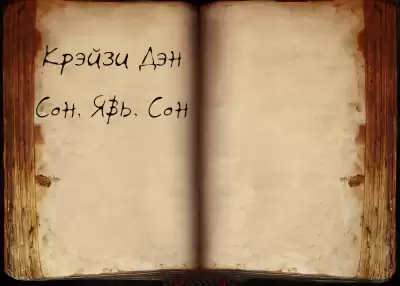 Крэйзи Дэн
Сон. Я$ь. Сон